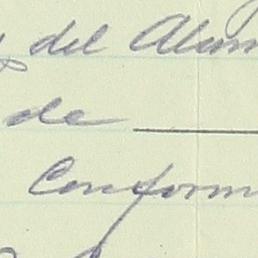 y del Alum
de
Conform